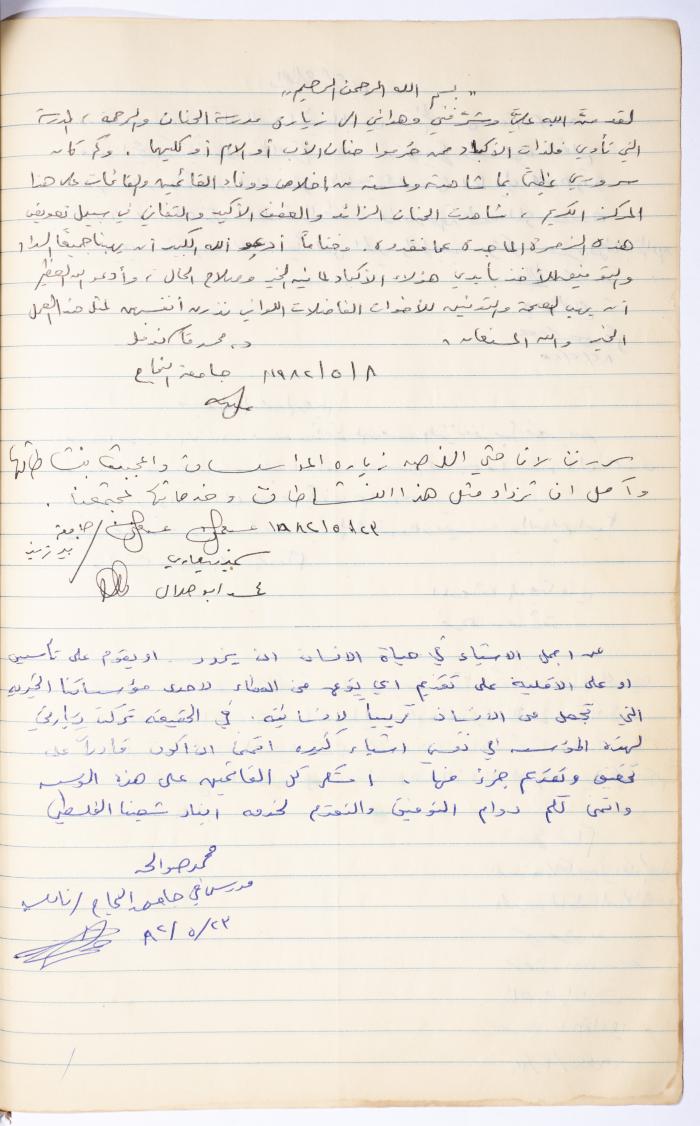 "بسم الله الرحمن الرحيم"
لقد منّ الله عليّ وشرّفني وهداني الى زيارة مدرسة الحنان والرحمة، المدرسة
التي تأوي فلذات الأكباد ممن حُرموا حنان الأب أو الام أو كليهما. وكم كان
سروري عظيماً بما شاهدته ولمسته من اخلاص ووفاء القائمين والقائمات على هذا
المركز الكريم، شاهدت الحنان الزائد والعطف الأكيد والتفاني في سبيل تعويض
هذه الزمرة الماجدة عما فقدوه. وختاماً أدعو الله الكبير أن يهبنا جميعاً السداد
والتوفيق للأخذ بأيدي هؤلاء الأكباد لما فيه الخير وصلاح الحال، وأدعو الله العظيم
أن يهب الصحة والتوفيق للأخوات الفاضلات اللواتي نذرن أنفسهن لمثل هذا العمل
الخيّر والله المستعان.
د. محمد نوفل
١٩٨٢/٥/٨ جامعة النجاح
سررنا لاتاحتي الفرصه زياره المؤسسات واعجبنا بنشاطاتها
وآمل ان تزداد مثل هذا النشاطات وخدماتها لمجتمعنا.
١٩٨٢/٥/٢٣ / جامعة
بير زيت
ابو هلال
من اجمل الاشياء في حياة الانسان ان يزور او يقوم على تأسيس
او على الاقلية على تقديم اي نوع من العطاء لاحدى مؤسساتنا الخيريه
التي تجعل من الانسان قريباً لانسانيته. في الحقيقه تركت زيارتي
لهذه المؤسسه في نفسي اشياء كثيره اتمنى ان اكون قادراً على
تحقيق وتقديم جزء منها. اشكر كل القائمين على هذه المؤسسه
واتمنى لكم دوام التوفيق والتقدم لخدمه ابناء شعبنا الفلسطيني
محمد صوالحه
مدرس في جامعه النجاح / نابلس
٨٢/٥/٢٣